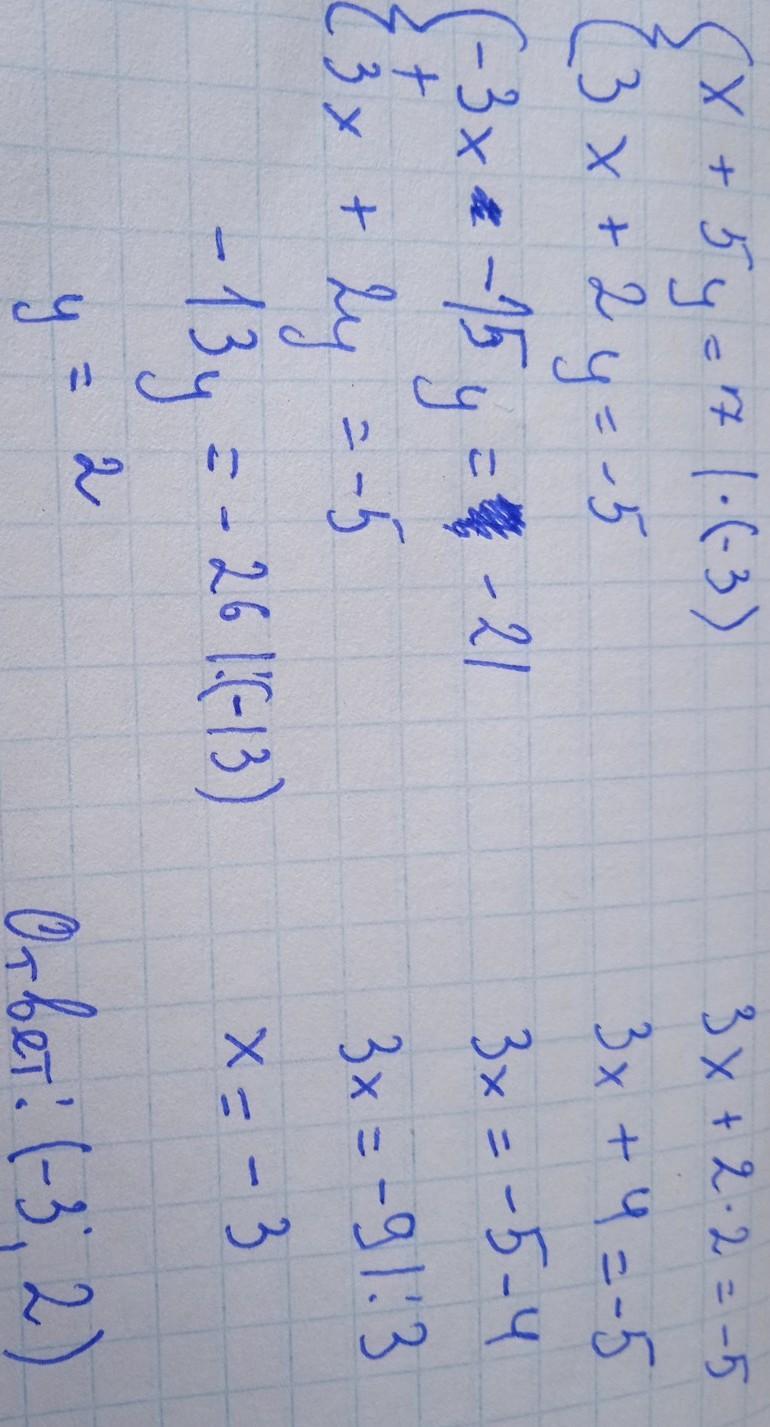 { x + 5y = 7 | · (-3)
{ 3x + 2y = -5
{ -3x - 15y = -21
+
{ 3x + 2y = -5
-13y = -26 | : (-13)
y = 2
3x + 2 · 2 = -5
3x + 4 = -5
3x = -5 - 4
3x = -9 | : 3
x = -3
Ответ: (-3; 2)